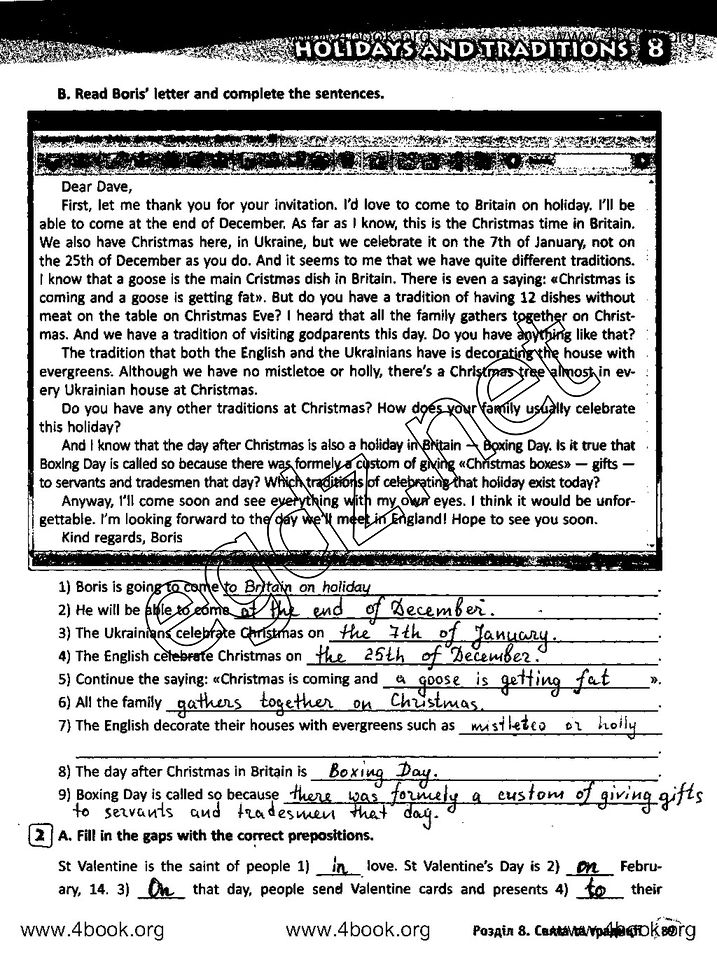 www.4book.org www.4book.org
HOLIDAYS AND TRADITIONS 8
B. Read Boris' letter and complete the sentences.
Dear Dave,
First, let me thank you for your invitation. I'd love to come to Britain on holiday. I'll be
able to come at the end of December. As far as I know, this is the Christmas time in Britain.
We also have Christmas here, in Ukraine, but we celebrate it on the 7th of January, not on
the 25th of December as you do. And it seems to me that we have quite different traditions.
I know that a goose is the main Cristmas dish in Britain. There is even a saying: «Christmas is
coming and a goose is getting fat». But do you have a tradition of having 12 dishes without
meat on the table on Christmas Eve? I heard that all the family gathers together on Christ-
mas. And we have a tradition of visiting godparents this day. Do you have anything like that?
The tradition that both the English and the Ukrainians have is decorating the house with
evergreens. Although we have no mistletoe or holly, there's a Christmas tree almost in ev-
ery Ukrainian house at Christmas.
Do you have any other traditions at Christmas? How does your family usually celebrate
this holiday?
And I know that the day after Christmas is also a holiday in Britain — Boxing Day. Is it true that
Boxing Day is called so because there was formely a custom of giving «Christmas boxes» — gifts —
to servants and tradesmen that day? Which traditions of celebrating that holiday exist today?
Anyway, I'll come soon and see everything with my own eyes. I think it would be unfor-
gettable. I'm looking forward to the day we'll meet in England! Hope to see you soon.
Kind regards, Boris
egdz.net
1) Boris is going to come to Britain on holiday.
2) He will be able to come at the end of December.
3) The Ukrainians celebrate Christmas on the 7th of January.
4) The English celebrate Christmas on the 25th of December.
5) Continue the saying: «Christmas is coming and a goose is getting fat».
6) All the family gathers together on Christmas.
7) The English decorate their houses with evergreens such as mistleteo or holly
8) The day after Christmas in Britain is Boxing Day.
9) Boxing Day is called so because there was formely a custom of giving gifts
to servants and tradesmen that day.
2 A. Fill in the gaps with the correct prepositions.
St Valentine is the saint of people 1) in love. St Valentine's Day is 2) on Febru-
ary, 14. 3) On that day, people send Valentine cards and presents 4) to their
www.4book.org www.4book.org Розділ 8. Свята та традиції 89 www.4book.org